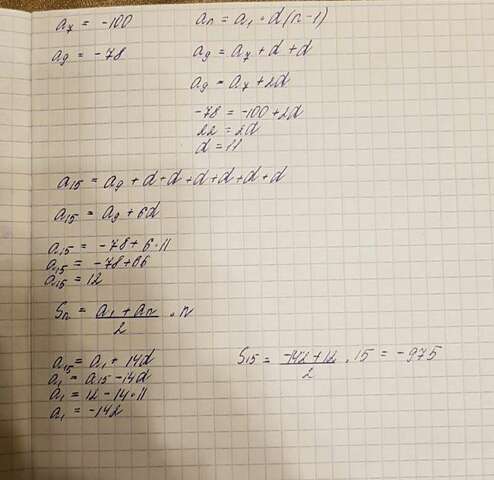 a₇ = -100
aₙ = a₁ · d(n-1)
a₉ = -78
a₉ = a₇ + d + d
a₉ = a₇ + 2d
-78 = -100 + 2d
22 = 2d
d = 11
a₁₅ = a₉ + d + d + d + d + d + d
a₁₅ = a₉ + 6d
a₁₅ = -78 + 6 · 11
a₁₅ = -78 + 66
a₁₅ = 12
Sₙ = (a₁ + aₙ)/2 · n
a₁₅ = a₁ + 14d
a₁ = a₁₅ - 14d
a₁ = 12 - 14 · 11
a₁ = -142
S₁₅ = (-142 + 12)/2 · 15 = -975